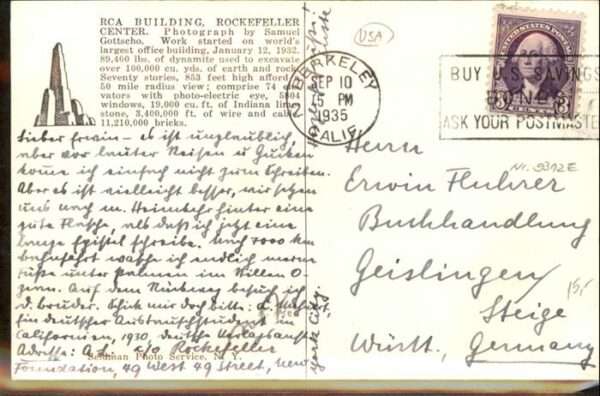 RCA BUILDING, ROCKEFELLER
CENTER. Photograph by Samuel
Gottscho. Work started on world's
largest office building, January 12, 1932.
89,460 lbs. of dynamite used to excavate
over 100,000 cu. yds. of earth and rock.
Seventy stories, 853 feet high afford
50 mile radius view; comprise 74
vators with photo-electric eye,
windows, 19,000 cu. ft. of Indiana lime
stone, 3,400,000 ft. of wire and
11,210,000 bricks.
Lieber Erwin – es ist unglaublich,
aber vor lauter Reisen u Gucken
komme ich einfach nicht zum Schreiben.
Aber es ist vielleicht besser, wir setzen
uns nach m. Heimkehr hinter eine
gute Flasche, als daß ich jetzt eine
lange Epistel schreibe. Nach 7000 km
Bahnfahrt wasche ich endlich meine
Füße unter Palmen im Stillen O-
zean. Auf dem Rückweg besuch ich
d. Bruder. Schick mir doch bitte:
Ein deutscher Austauschstudent in
Californien, 1930, deutsche Verlagsanst
Adresse: c/o Rockefeller
Foundation, 49 West 49 Street, New
York City.
Seidman Photo Service, N. Y.
USA
BERKELEY
SEP 10
5 PM
1935
CALIF.
UNITED STATES POSTAGE
3 3
BUY U.S. SAVINGS
BONDS
ASK YOUR POSTMASTER
Nr. 9312 E
Herrn
Erwin Fluhrer
Buchhandlung
Geislingen/
Steige
Württ., Germany
15,-